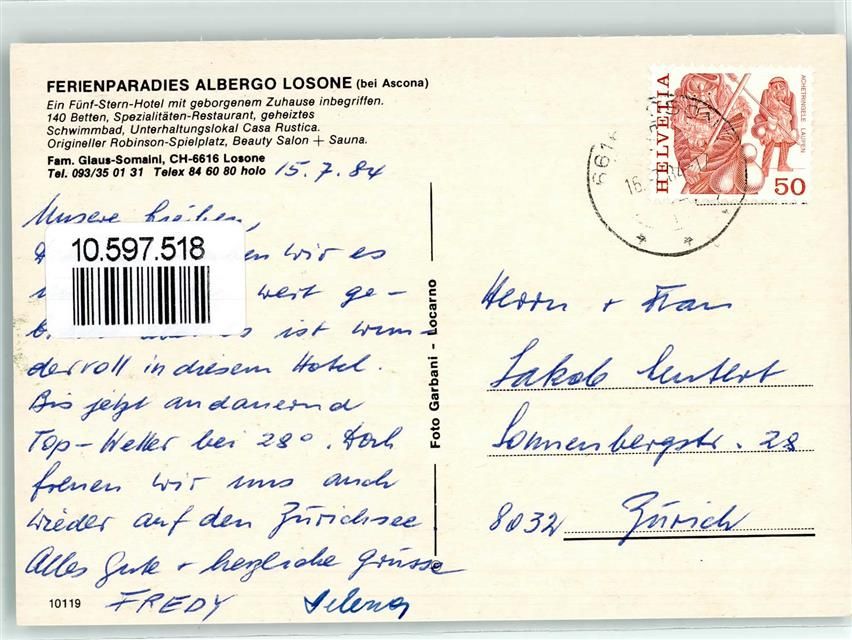 FERIENPARADIES ALBERGO LOSONE (bei Ascona)
Ein Fünf-Stern-Hotel mit geborgenem Zuhause inbegriffen.
140 Betten, Spezialitäten-Restaurant, geheiztes
Schwimmbad, Unterhaltungslokal Casa Rustica.
Origineller Robinson-Spielplatz, Beauty Salon + Sauna.
Fam. Glaus-Somaini, CH-6616 Losone
Tel. 093/35 01 31 Telex 84 60 80 holo
15.7.84
Unsere Lieben,
wir es
10.597.518
weit ge-
es ist wun-
dervoll in diesem Hotel.
Bis jetzt andauernd
Top-Wetter bei 28°. Doch
freuen wir uns auch
wieder auf den Zürichsee
Alles Gute + herzliche Grüsse
FREDY
10119
Foto Garbani - Locarno
HELVETIA
ACHETRINGELE LAUPEN
50
6616
Herrn + Frau
Jakob
Sonnenbergstr. 28
8032 Zürich